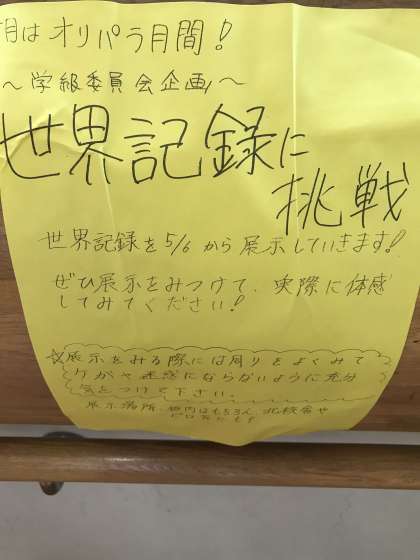 月はオリパラ月間!
~学級委員会企画~
世界記録に
挑戦
世界記録を5/6から展示していきます!
ぜひ展示をみつけて、実際に体感
してみてください!
☆展示をみる際には周りをよくみて
ケガや迷惑にならないように充分
気をつけて下さい。
展示場所 館内はもちろん、北校舎や
にも!